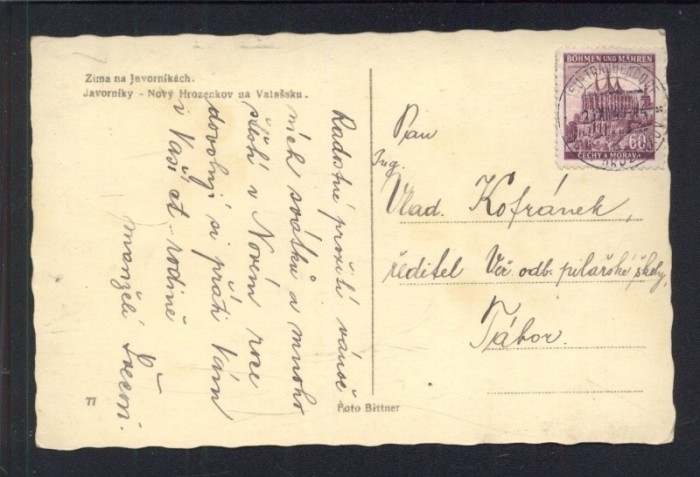 Zima na Javorníkách.
Javorníky - Nový Hrozenkov na Valašsku.
Radostné prožití vánoč
ních svátků a mnoho
štěstí v Novém roce
dovolují si přáti Vám
i Vaší ct. rodině
manželé
77
Foto Bittner
BÖHMEN UND MÄHREN
60
ČECHY A MORAVA
Pan
Ing.
Vlad. Kofránek,
ředitel Veř. odb. pilařské školy,
Tábor.